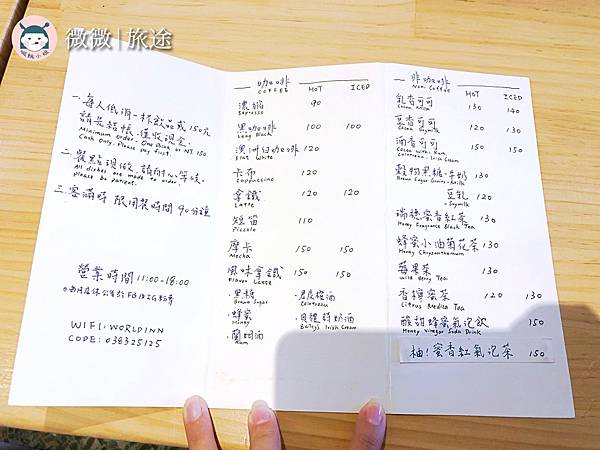 微微|旅途
一. 每人低消一杯飲品或150元
請先結帳,僅收現金.
Minimum Order: One Drink or NT.150
Cash Only. Please pay first.
二. 餐點現做,請耐心等候.
All dishes are made to order,
please be patient.
三. 客滿時 限用餐時間 90分鐘
營業時間 11:00-18:00
WIFI: WORLDINN
CODE: 038325125
咖啡 HOT ICED
COFFEE
濃縮 90
Espresso
黑咖啡 100 100
Long Black
澳洲白咖啡 120
Flat White
卡布 120
Cappuccino
拿鐵 120 120
Latte
短笛 110
Piccolo
摩卡 150 150
Mocha
風味拿鐵 150 150
Flavor Latte
·黑糖 ·君度橙酒
Brown Sugar Cointreau
·蜂蜜 ·貝禮詩奶酒
Honey Bailey's Irish Cream
·蘭姆酒
Rum
非咖啡 HOT ICED
Non Coffee
乳香可可 130 140
Cocoa Milk
豆香可可 120 130
Cocoa Soymilk
酒香可可 150 150
Cocoa with: Rum
Cointreau · Irish Cream
穀物黑糖·牛奶 130
Brown Sugar Grains -Milk
豆乳 120
-Soymilk
瑞穗蜜香紅茶 130
Honey Fragrance Black Tea
蜂蜜小油菊花茶 130
Honey Chrysanthemum
莓果茶 130
Wild Berry Tea
香檸蜜茶 120 130
Citrus Medica Tea
酸甜蜂蜜氣泡飲 150
Honey Vinegar Soda Drink
柚!蜜香紅氣泡茶 150